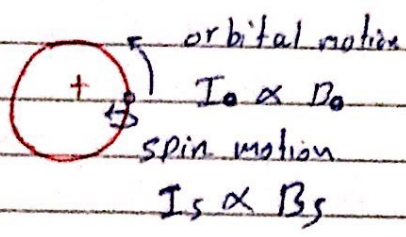 orbital motion
+
I₀ ∝ B₀
spin motion
Is ∝ Bs